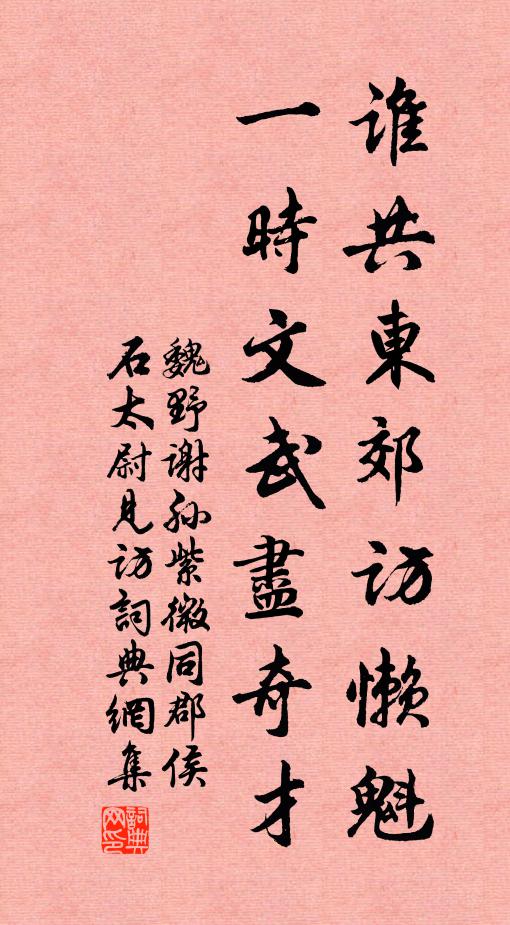 誰共東郊訪懶魁
一時文武盡奇才
魏野謝孫紫微同郡侯
石太尉見訪詞典網集
詞典
网印